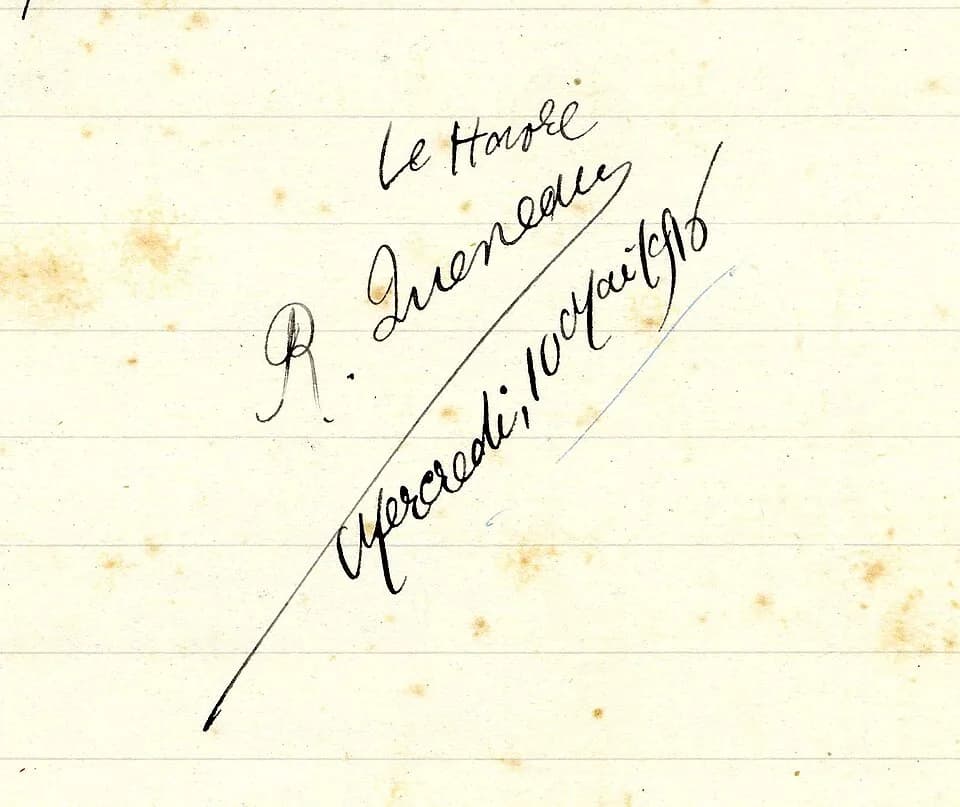 Le Havre
R. Queneau
Mercredi, 10 Mai 1916